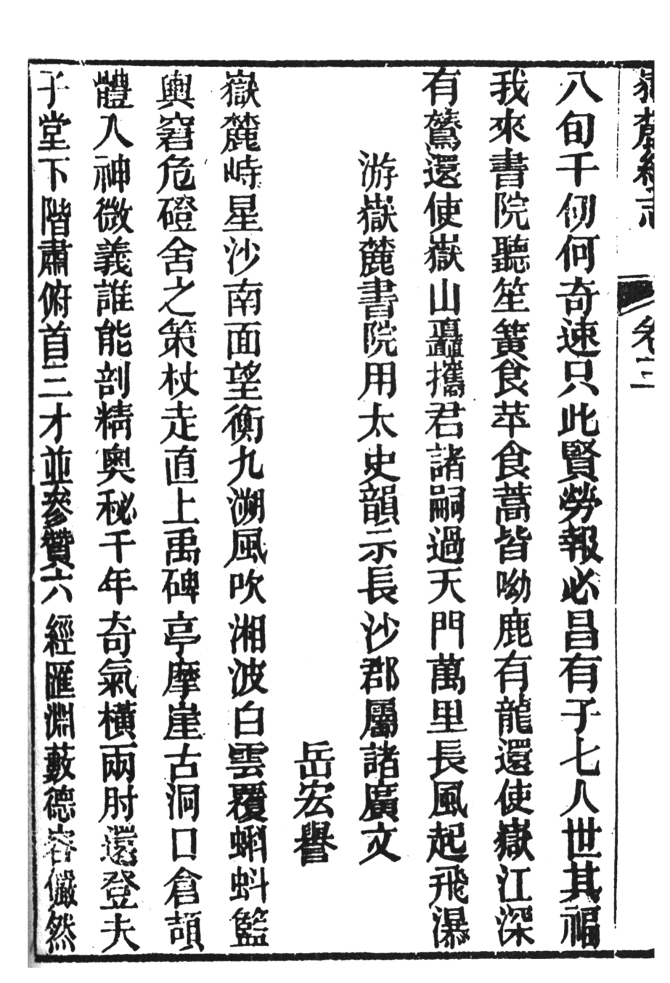 嶽麓續志
卷三
八旬千仞何奇速只此賢勞報必昌有子七人世其福
我來書院聽笙簧食苹食蒿皆呦鹿有龍還使嶽江深
有鶩還使嶽山矗攜君諸嗣過天門萬里長風起飛瀑
游嶽麓書院用太史韻示長沙郡屬諸廣文
岳宏譽
嶽麓峙星沙南面望衡九溯風吹湘波白雲覆蝌蚪籃
輿窘危磴舍之策杖走直上禹碑亭摩崖古洞口倉頡
體入神微義誰能剖精奧秘千年奇氣橫兩肘還登夫
子堂下階肅俯首三才並參贊六經匯淵藪德容儼然